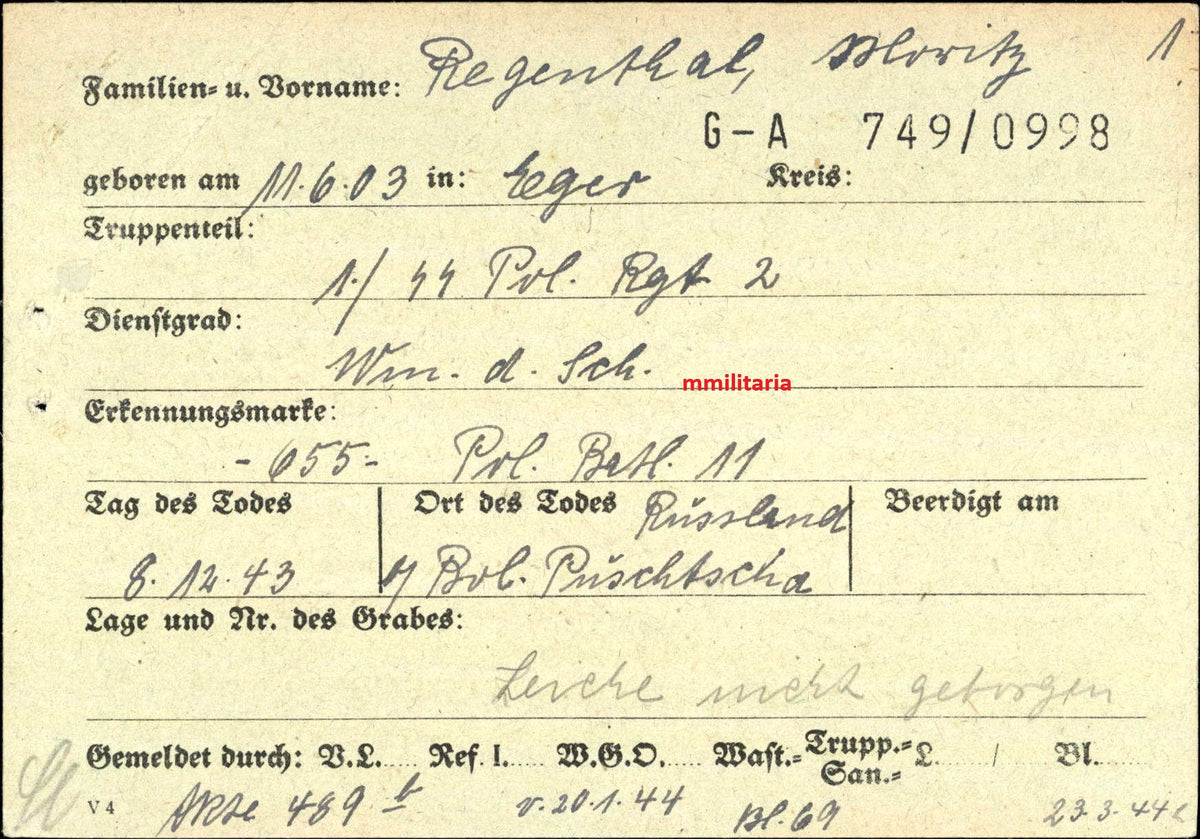 Familien- u. Vorname: Regenthal, Moritz 1
G-A 749/0998
geboren am 11.6.03 in: Eger Kreis:
Truppenteil:
1./ 44 Pol. Rgt. 2
Dienstgrad:
Wm. d. Sch.
mmilitaria
Erkennungsmarke:
-655- Pol. Batl. 11
Tag des Todes Ort des Todes Russland Beerdigt am
8.12.43 Bol. Puschtscha
Lage und Nr. des Grabes:
Leiche nicht geborgen
Gemeldet durch: V.L..... Ref. I..... W.G.O..... Wast.- Trupp.- L....../ Bl......
San.-
V 4 Akte 489 v. 20.1.44 Bl. 69 23.3.44